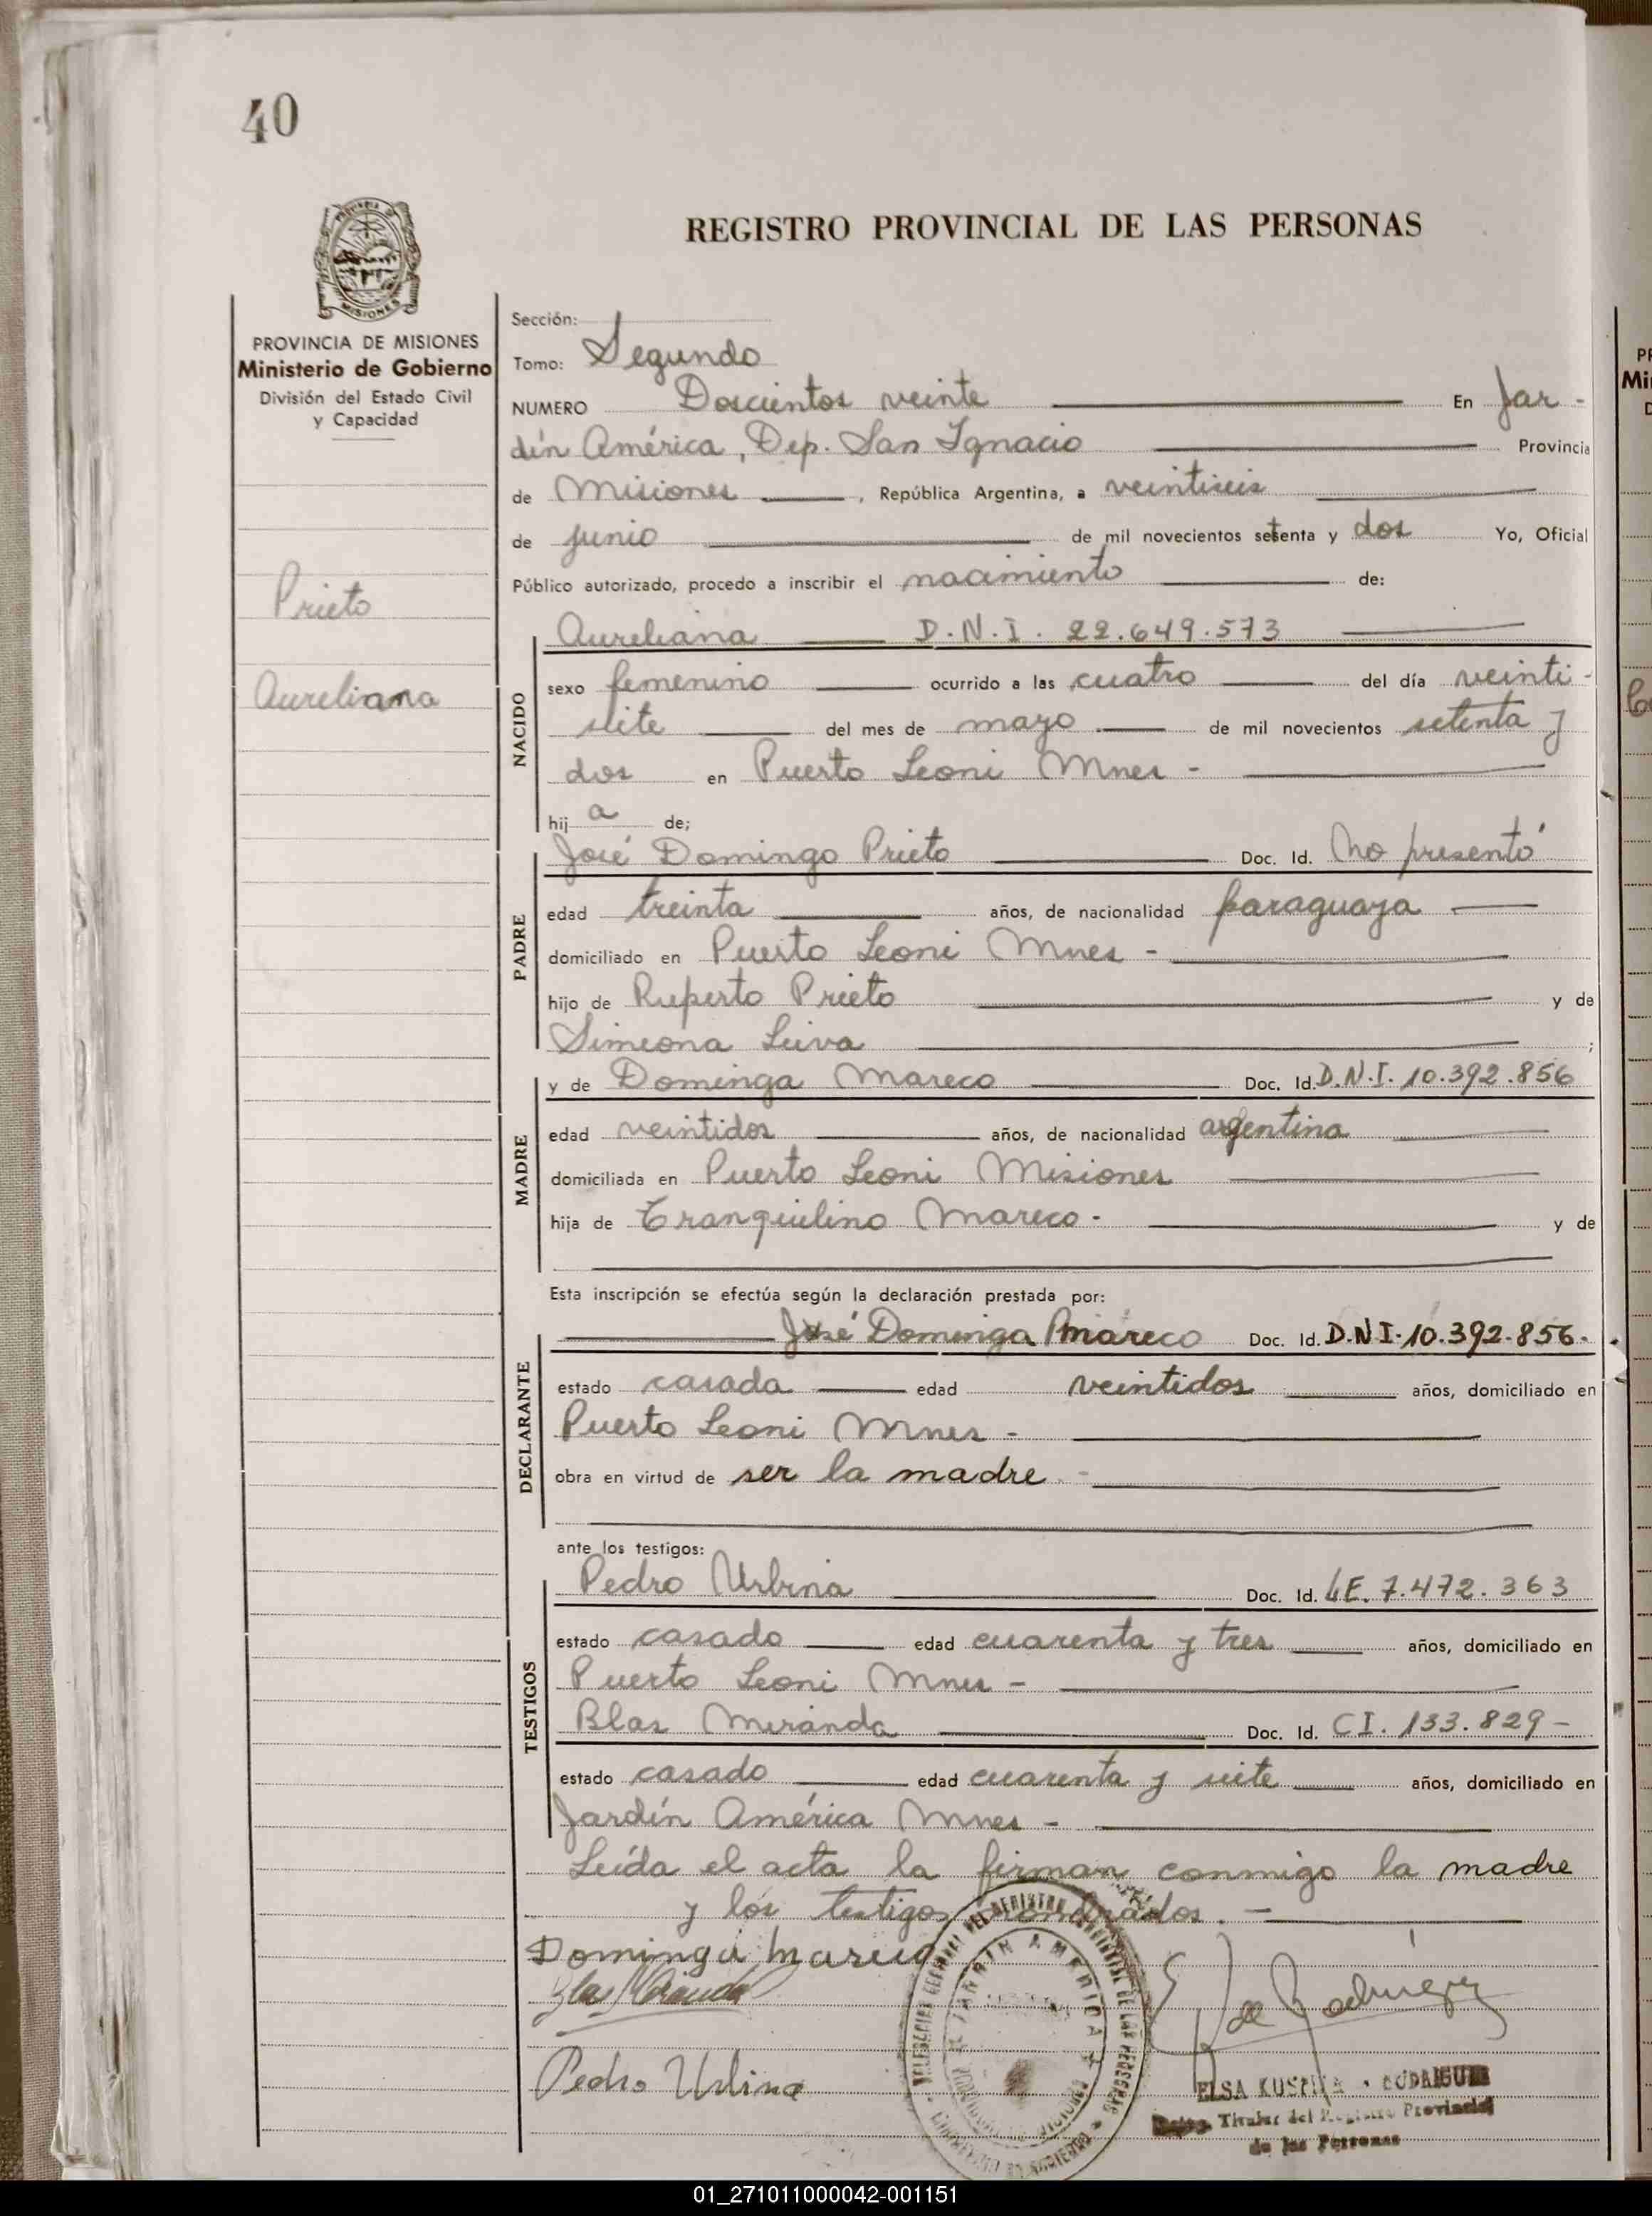 40
REGISTRO PROVINCIAL DE LAS PERSONAS
MISIONES
PROVINCIA DE MISIONES
Ministerio de Gobierno
División del Estado Civil
y Capacidad
Prieto
Aureliana
Sección:
Tomo: Segundo
NUMERO Doscientos veinte En Jar-
dín América, Dep. San Ignacio Provincia
de Misiones, República Argentina, a veintiseis
de junio de mil novecientos setenta y dos Yo, Oficial
Público autorizado, procedo a inscribir el nacimiento de:
Aureliana D.N.I. 22.649.573
NACIDO
sexo femenino ocurrido a las cuatro del día veinti-
siete del mes de mayo de mil novecientos setenta y
dos en Puerto Leoni Mnes -
hij a de;
José Domingo Prieto Doc. Id. No presentó
PADRE
edad treinta años, de nacionalidad paraguaya
domiciliado en Puerto Leoni Mnes -
hijo de Ruperto Prieto y de
Simeona Leiva ;
y de Dominga Mareco Doc. Id. D.N.I. 10.392.856
MADRE
edad veintidos años, de nacionalidad argentina
domiciliada en Puerto Leoni Misiones
hija de Tranquilino Mareco - y de
Esta inscripción se efectúa según la declaración prestada por:
Dominga Mareco Doc. Id. D.N.I. 10.392.856.
DECLARANTE
estado casada edad veintidos años, domiciliado en
Puerto Leoni Mnes -
obra en virtud de ser la madre. -
ante los testigos:
Pedro Urbina Doc. Id. LE. 7.472.363
TESTIGOS
estado casado edad cuarenta y tres años, domiciliado en
Puerto Leoni Mnes -
Blas Miranda Doc. Id. CI. 133.829-
estado casado edad cuarenta y siete años, domiciliado en
Jardín América Mnes -
Leída el acta la firman conmigo la madre
y los testigos nombrados. -
Dominga Mareco
Blas Miranda
Pedro Urbina
JARDIN AMERICA
ELSA RODRIGUEZ
Titular del Registro Provincial
de las Personas
01_271011000042-001151